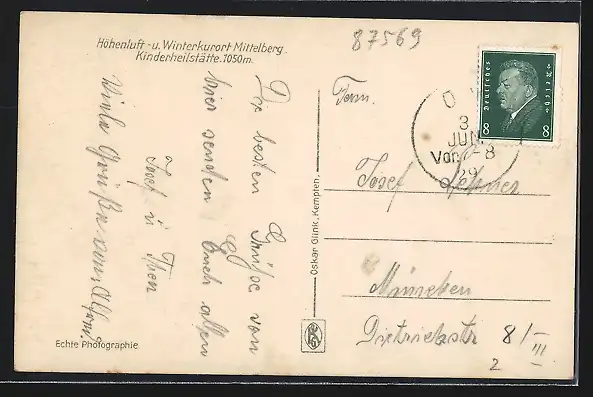 87569
Höhenluft- u. Winterkurort Mittelberg.
Kinderheilstätte. 1050 m.
Die besten Grüße von
hier senden Euch allen
Josef u.
Viele Grüße vom
Echte Photographie.
Oskar Glink, Kempten.
Deutsches Reich
8 8
3
JUN
Vor. 7-8
29
Fam.
Josef
München
Dietrichstr 8/III
2